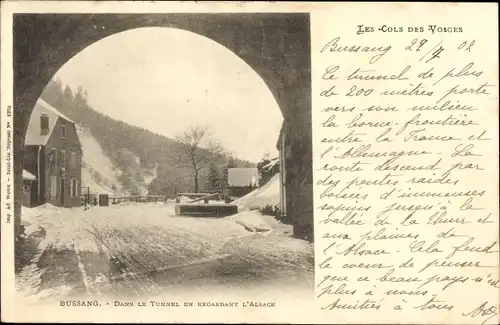 LES COLS DES VOSGES
Bussang 29/7 02
Ce tunnel de plus
de 200 mètres porte
vers son milieu
la borne-frontière
entre la France et
l'Allemagne. La
route descend par
des pentes raides
d'immenses
sapins jusqu'à la
vallée de la Thur et
aux plaines de
l'Alsace. Cela fend
le cœur de penser
que ce beau pays n'est
plus à nous.
Amitiés à tous
BUSSANG. - DANS LE TUNNEL EN REGARDANT L'ALSACE
Imp Ad. Weick - Saint-Dié (Déposé) No